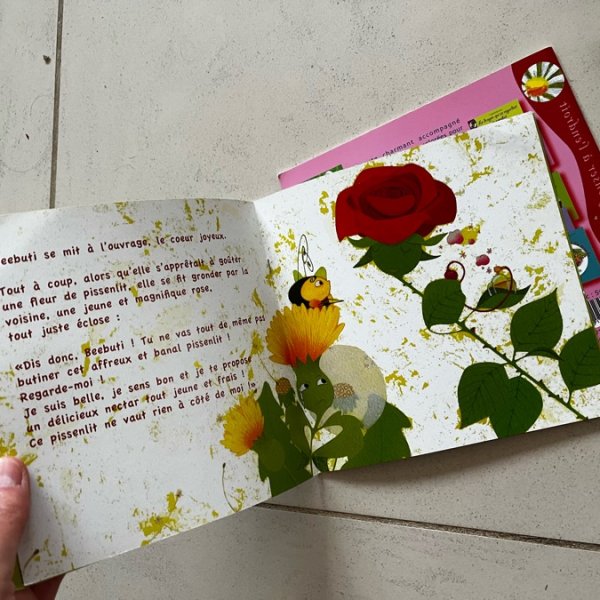 Beebuti se mit à l'ouvrage, le coeur joyeux.
Tout à coup, alors qu'elle s'apprêtait à goûter
une fleur de pissenlit, elle se fit gronder par la
voisine, une jeune et magnifique rose,
tout juste éclose :
«Dis donc, Beebuti ! Tu ne vas tout de même pas
butiner cet affreux et banal pissenlit !
Regarde-moi !
Je suis belle, je sens bon et je te propose
un délicieux nectar tout jeune et frais !
Ce pissenlit ne vaut rien à côté de moi !»
charmant accompagné
pour